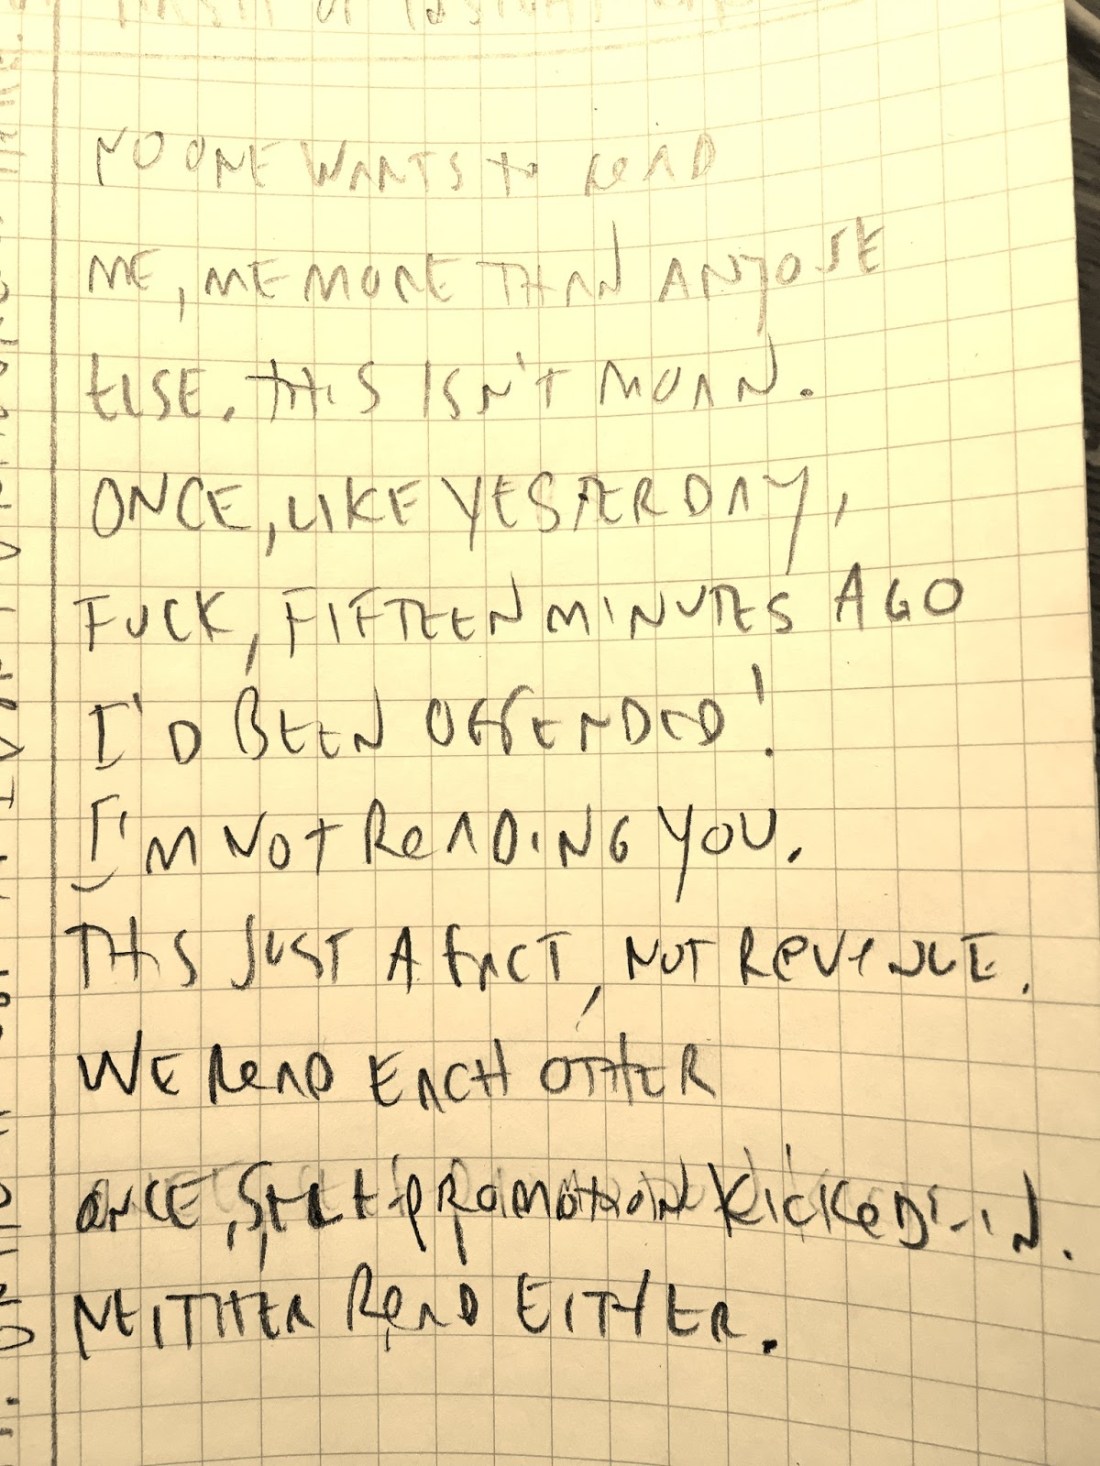 NO ONE WANTS to READ
ME, ME MORE THAN ANYONE
ELSE. THIS ISN'T MOAN.
ONCE, LIKE YESTERDAY,
FUCK, FIFTEEN MINUTES AGO
I'D BEEN OFFENDED!
I'M NOT READING YOU.
THIS JUST A FACT, NOT REVENUE.
WE READ EACH OTHER
ONCE, SELF PROMOTION KICKED-IN.
NEITHER READ EITHER.